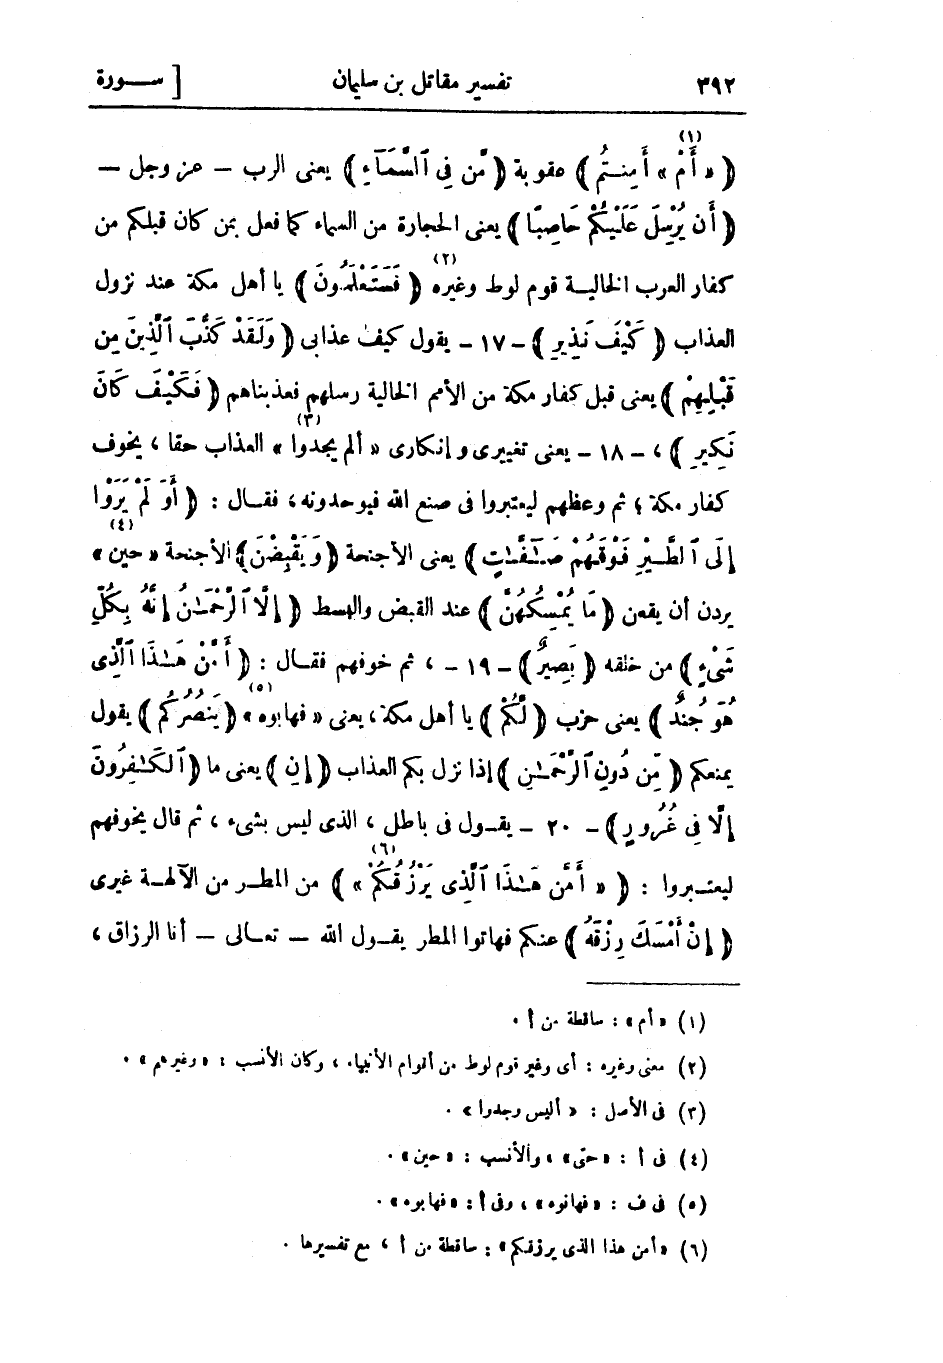 ٣٩٢ تفسير مقاتل بن سليمان [ ســورة
(١)
﴿ « أَمْ » أَمِنتُم ﴾ عقوبة ﴿ مَّن فِي ٱلسَّمَآءِ ﴾ يعنى الرب – عز وجل –
﴿ أَن يُرْسِلَ عَلَيْكُمْ حَاصِبًا ﴾ يعنى الحجارة من السماء كما فعل بمن كان قبلكم من
كفار العرب الخالية قوم لوط وغيره (٢) ﴿ فَسَتَعْلَمُونَ ﴾ يا أهل مكة عند نزول
العذاب ﴿ كَيْفَ نَذِيرِ ﴾ – ١٧ – يقول كيف عذابى ﴿ وَلَقَدْ كَذَّبَ ٱلَّذِينَ مِن
قَبْلِهِمْ ﴾ يعنى قبل كفار مكة من الأمم الخالية رسلهم فعذبناهم ﴿ فَكَيْفَ كَانَ
نَكِيرِ ﴾ ، – ١٨ – يعنى تغييرى و إنكارى « ألم يجدوا (٣) » العذاب حقا ، يخوف
كفار مكة ؛ ثم وعظهم ليعتبروا فى صنع الله فيوحدونه ، فقـال : ﴿ أَوَ لَمْ يَرَوْا
إِلَى ٱلطَّـيْرِ فَوْقَهُمْ صَـٰٓفَّـٰتٍ ﴾ يعنى الأجنحة ﴿ وَيَقْبِضْنَ ﴾ الأجنحة « حين (٤) »
يردن أن يقعن ﴿ مَا يُمْسِكُهُنَّ ﴾ عند القبض والبسط ﴿ إِلَّا ٱلرَّحْمَـٰنُ إِنَّهُ بِكُلِّ
شَىْءٍ ﴾ من خلقه ﴿ بَصِيرٌ ﴾ – ١٩ – ، ثم خوفهم فقـال : ﴿ أَمَّنْ هَـٰذَا ٱلَّذِى
هُوَ جُندٌ ﴾ يعنى حزب ﴿ لَّكُمْ ﴾ يا أهل مكة ، يعنى « فهابوه (٥) » ﴿ يَنصُرُكُم ﴾ يقول
يمنعكم ﴿ مِّن دُونِ ٱلرَّحْمَـٰنِ ﴾ إذا نزل بكم العذاب ﴿ إِنِ ﴾ يعنى ما ﴿ ٱلْكَـٰفِرُونَ
إِلَّا فِى غُرُورٍ ﴾ – ٢٠ – يقـول فى باطل ، الذى ليس بشىء ، ثم قال يخوفهم
ليعتـبروا : ﴿ « أَمَّن هَـٰذَا ٱلَّذِى يَرْزُقُكُمْ (٦) » ﴾ من المطـر من الآلهـة غيرى
﴿ إِنْ أَمْسَكَ رِزْقَهُ ﴾ عنكم فهاتوا المطر يقـول الله – تعـالى – أنا الرزاق ،
(١) « أم » : ساقطة من أ .
(٢) معنى وغيره : أى وغير قوم لوط من أقوام الأنبياء ، وكان الأنسب : « وغيرهم » .
(٣) فى الأصل : « أليس وجدوا » .
(٤) فى أ : « حتى » ، والأنسب : « حين » .
(٥) فى ف : « فهاتوه » ، وفى أ : « فهابوه » .
(٦) « أمن هذا الذى يرزقكم » : ساقطة من أ ، مع تفسيرها .